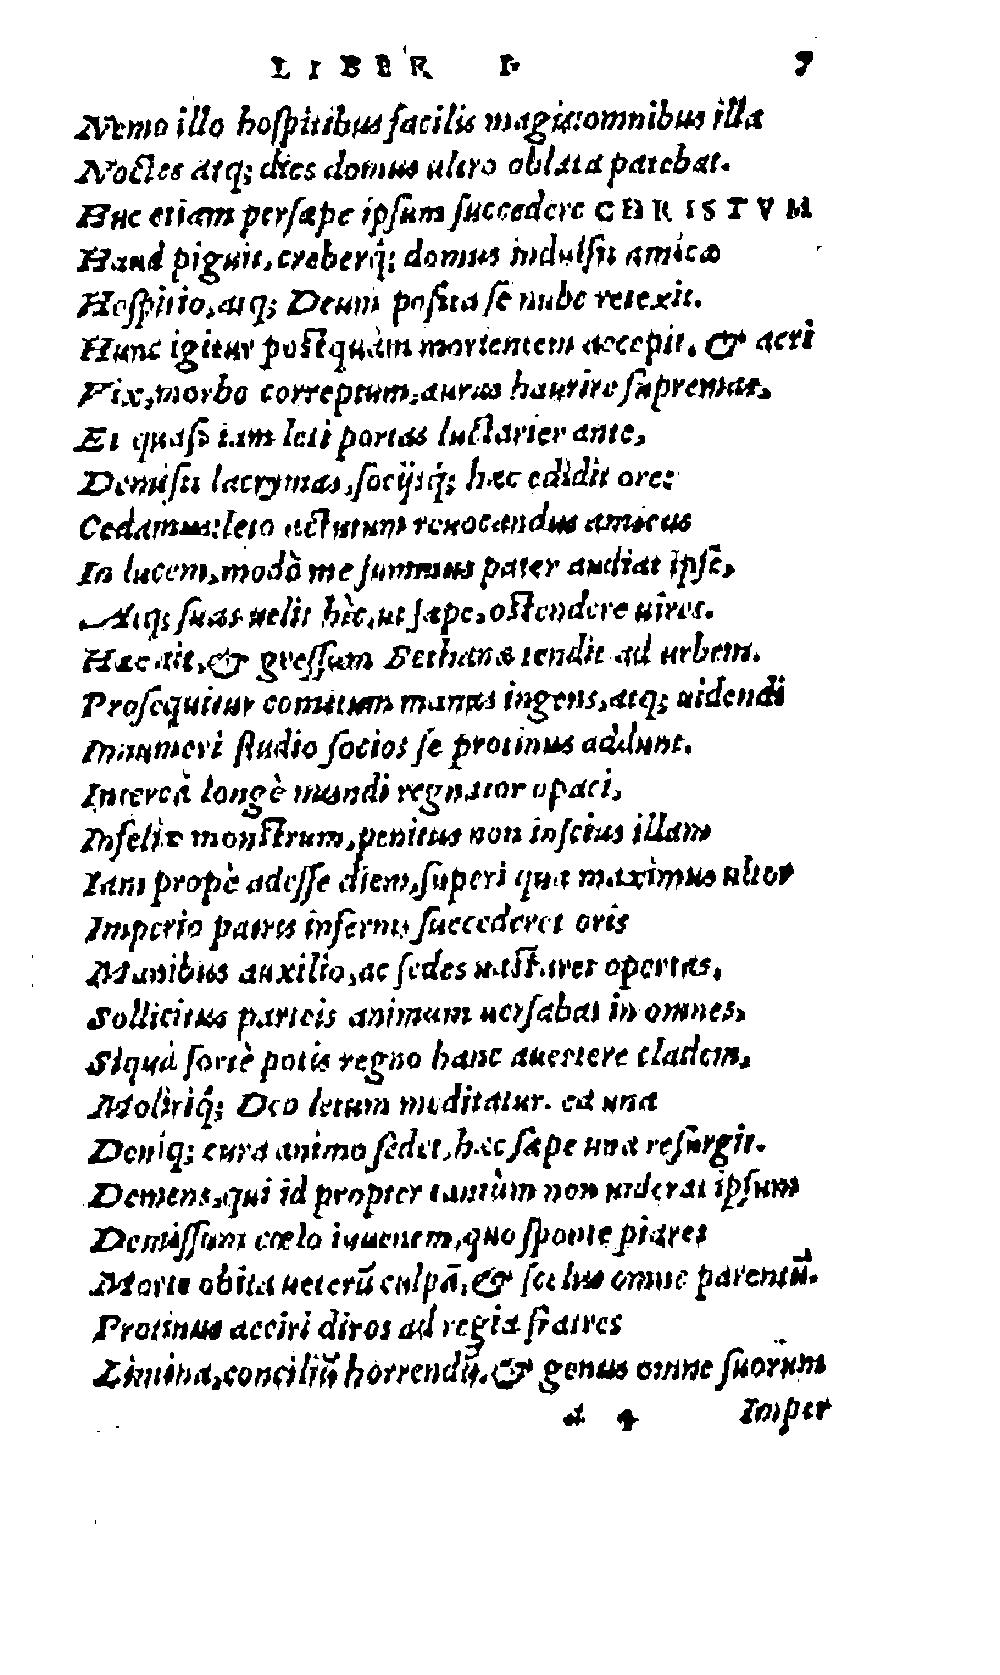 LIBER I. 7
Nemo illo hospitibus facilis magis: omnibus illa
Noctes atq; dies domus ultro oblata patebat.
Huc etiam persæpe ipsum succedere CHRISTVM
Haud piguit, creberq́; domus indulsit amicæ
Hospitio, atq; Deum posita se nube retexit.
Hunc igitur postquàm morientem accepit, & acri
Vix, morbo correptum, auras haurire supremas,
Et quasi iam leti portas luctarier ante,
Demisit lacrymas, socijsq́; hæc edidit ore:
Cedamus: leto actutum reuocandus amicus
In lucem, modò me summus pater audiat ipse,
Atq; suas uelit hîc, ut sæpe, ostendere uires.
Hæc ait, & gressum Bethanæ tendit ad urbem.
Prosequitur comitum manus ingens, atq; uidendi
Innumeri studio socios se protinus addunt.
Intereà longè mundi regnator opaci,
Infelix monstrum, penitus non inscius illam
Iam propè adesse diem, superi qua maximus ultor
Imperio patris infernis succederet oris
Manibus auxilio, ac sedes uastaret opertas,
Sollicitus parteis animum uersabat in omnes,
Siquà fortè potis regno hanc auertere cladem,
Moliriq́; Deo letum meditatur. ea una
Deniq; cura animo sedet, hæc sæpe una resurgit.
Demens, qui id propter tantùm non uiderat ipsum
Demissum cœlo iuuenem, quo sponte piaret
Morte obita ueterū culpā, & scelus omne parentū.
Protinus acciri diros ad regia fratres
Limina, conciliū horrendū, & genus omne suorum
a 4 Imper